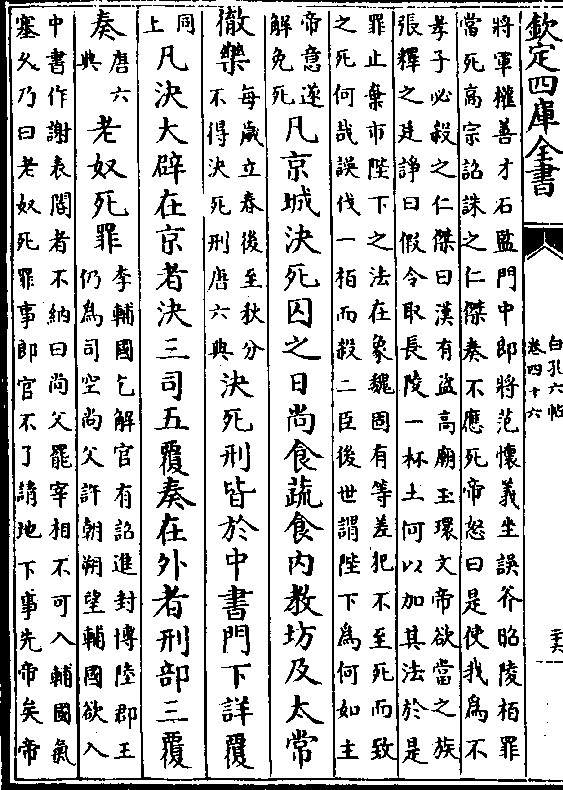 欽定四庫全書
白孔六帖
卷四十六
將軍權善才石監門中郎將范懷義坐誤斧昭陵柏罪
當死高宗詔誅之仁傑奏不應死帝怒曰是使我為不
孝子必殺之仁傑曰漢有盜高廟玉環文帝欲當之族
張釋之廷諍曰假令取長陵一杯土何以加其法於是
罪止棄市陛下之法在象魏固有等差犯不至死而致
之死何哉誤伐一柏而殺二臣後世謂陛下為何如主
帝意遂
解免死
凡京城決死囚之日尚食蔬食內教坊及太常
徹樂
每歲立春後至秋分
不得決死刑唐六典
決死刑皆於中書門下詳覆
同
上
凡決大辟在京者決三司五覆奏在外者刑部三覆
奏
唐六
典
老奴死罪
李輔國乞解官有詔進封博陸郡王
仍為司空尚父許朝朔望輔國欲入
中書作謝表閽者不納曰尚父罷宰相不可入輔國氣
塞久乃曰老奴死罪事郎官不了請地下事先帝矣帝